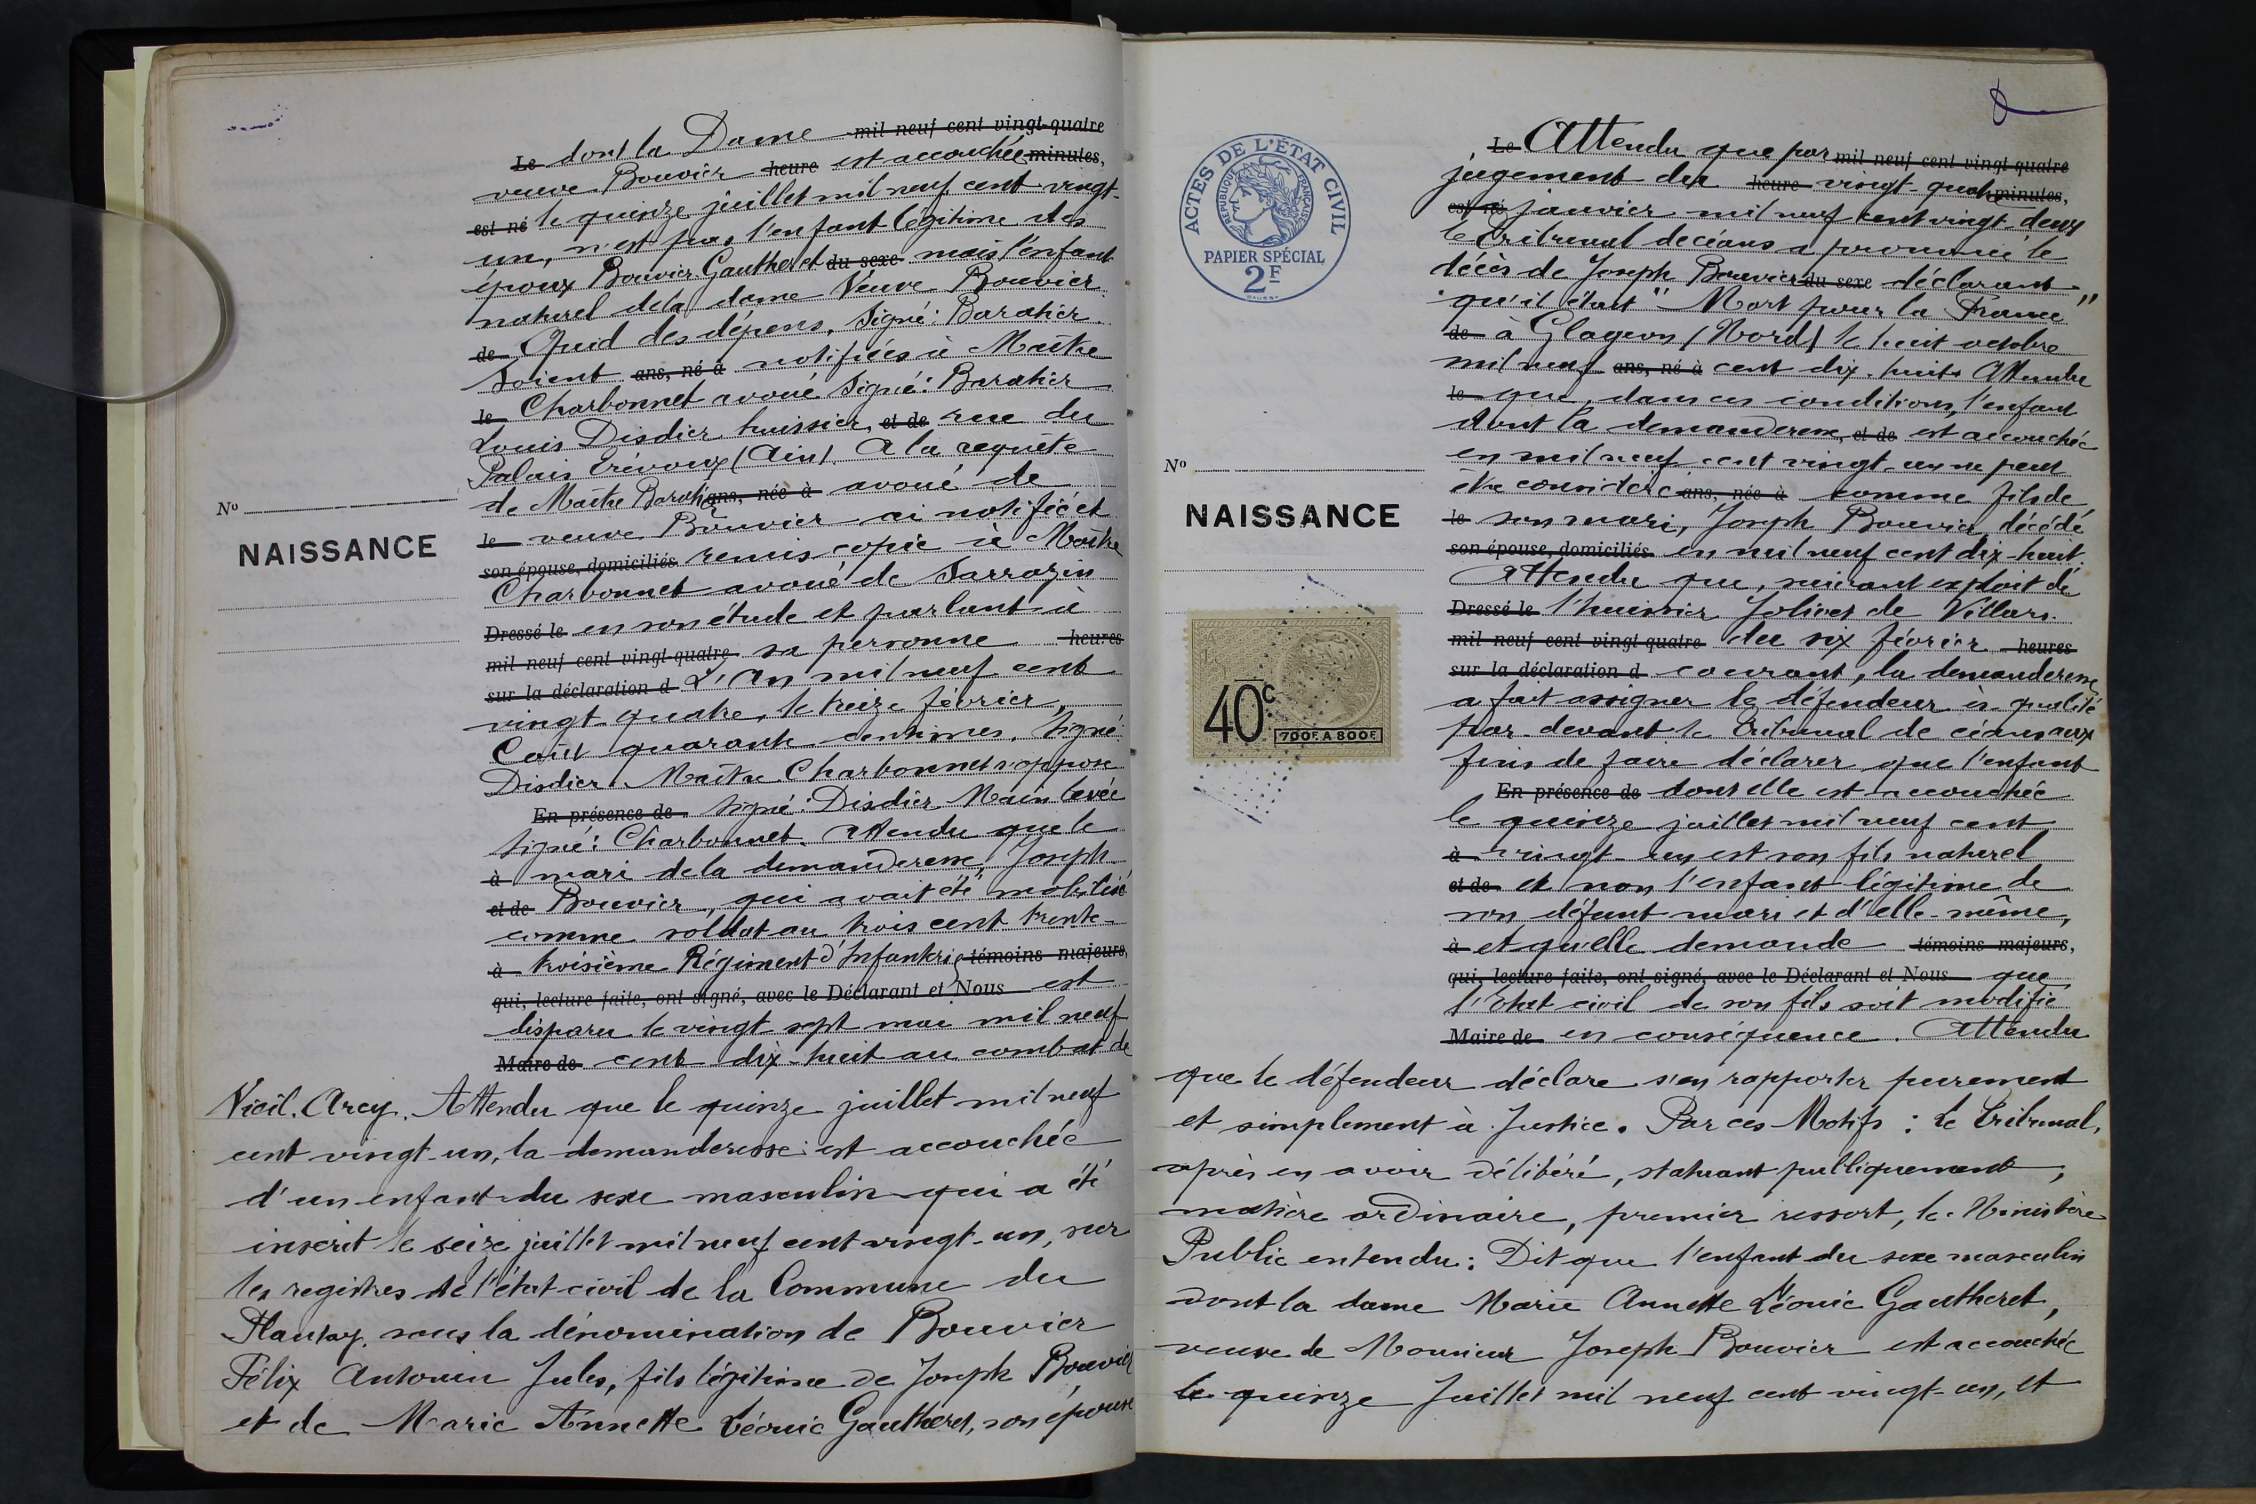 Le dont la Dame mil neuf cent vingt-quatre
veuve Bouvier heure est accouchée minutes,
est né le quinze juillet mil neuf cent vingt-
un, n'est pas l'enfant légitime des
époux Bouvier-Gautheret du sexe mais l'enfant
naturel de la dame Veuve Bouvier.
de Quid des dépens. Signé: Baratier.
Soient ans, né à notifiées à Maître
le Charbonnet avoué Signé: Baratier
Louis Disdier huissier, et de rue du
Palais Trévoux (Ain). A la requête
de Maître Baratier ans, née à avoué de
le veuve Bouvier ai notifié et
son épouse, domiciliés remis copie à Maître
Charbonnet avoué de Sarrazin
Dressé le en son étude et parlant à
mil neuf cent vingt-quatre sa personne heures
sur la déclaration d L'An mil neuf cent
vingt-quatre, le treize février,
Coût quarante centimes. Signé:
Disdier. Maître Charbonnet s'oppose
En présence de signé: Disdier Main levée
signé: Charbonnet. Attendu que le
à mari de la demanderesse, Joseph
et de Bouvier, qui avait été mobilisé
comme soldat au trois cent trente-
à troisième Régiment d'Infanterie témoins majeurs,
qui, lecture faite, ont signé, avec le Déclarant et Nous est
disparu le vingt sept mai mil neuf
Maire de cent dix-huit au combat de
Vieil. Arcy. Attendu que le quinze juillet mil neuf
cent vingt-un, la demanderesse est accouchée
d'un enfant du sexe masculin qui a été
inscrit le seize juillet mil neuf cent vingt-un, sur
les registres de l'état-civil de la Commune du
Plantay, sous la dénomination de Bouvier
Félix Antonin Jules, fils légitime de Joseph Bouvier
et de Marie Annette Léonie Gautheret, son épouse
No
NAISSANCE
Le Attendu que par mil neuf cent vingt-quatre
jugement du heure vingt-quatre minutes,
est né janvier mil neuf cent vingt-deux
le Tribunal de céans a prononcé le
décès de Joseph Bouvier du sexe déclarant
qu'il était "Mort pour la France"
de à Glageon (Nord) le huit octobre
mil neuf ans, né à cent dix-huit. Attendu
le que, dans ces conditions, l'enfant
dont la demanderesse, et de est accouchée
en mil neuf cent vingt-un ne peut
être considéré ans, née à comme fils de
le son mari, Joseph Bouvier, décédé
son épouse, domiciliés en mil neuf cent dix-huit.
Attendu que, suivant exploit de
Dressé le l'huissier Jolivet de Villars
mil neuf cent vingt-quatre du six février heures
sur la déclaration d courant, la demanderesse
a fait assigner le défendeur ès-qualité
par-devant le Tribunal de céans aux
fins de faire déclarer que l'enfant
En présence de dont elle est accouchée
le quinze juillet mil neuf cent
à vingt-un est son fils naturel
et de et non l'enfant légitime de
son défunt mari et d'elle-même,
à et qu'elle demande témoins majeurs,
qui, lecture faite, ont signé, avec le Déclarant et Nous que
l'état civil de son fils soit modifié
Maire de en conséquence. Attendu
que le défendeur déclare s'en rapporter purement
et simplement à Justice. Par ces Motifs: Le Tribunal,
après en avoir délibéré, statuant publiquement,
matière ordinaire, premier ressort, le Ministère
Public entendu: Dit que l'enfant du sexe masculin
dont la dame Marie Annette Léonie Gautheret,
veuve de Monsieur Joseph Bouvier est accouchée
le quinze Juillet mil neuf cent vingt-un, et
ACTES DE L'ÉTAT CIVIL
RÉPUBLIQUE FRANÇAISE
PAPIER SPÉCIAL
2F
No
NAISSANCE
40c
700F. A 800F.